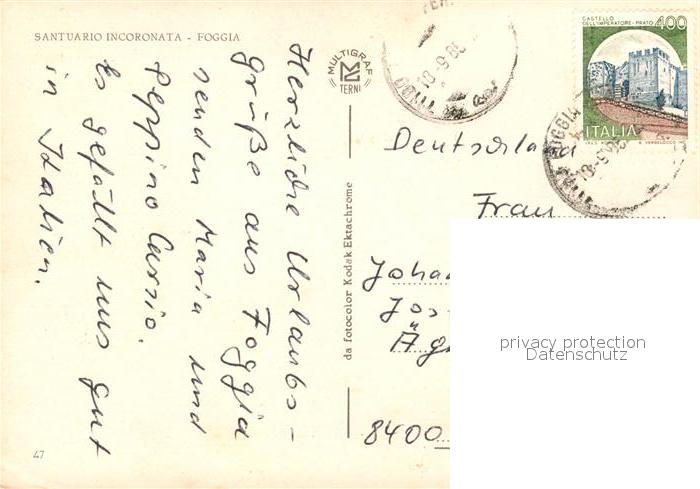 SANTUARIO INCORONATA - FOGGIA
Herzliche Urlaubs-
grüße aus Foggia
senden Maria und
Peppino Carsio.
Es gefällt uns gut
in Italien.
47
MULTIGRAF
TERNI
da fotocolor Kodak Ektachrome
CASTELLO
DELL'IMPERATORE - PRATO
400
ITALIA
FOGGIA
Deutschland
Frau
Joha
Jos
Äg
8400
privacy protection
Datenschutz